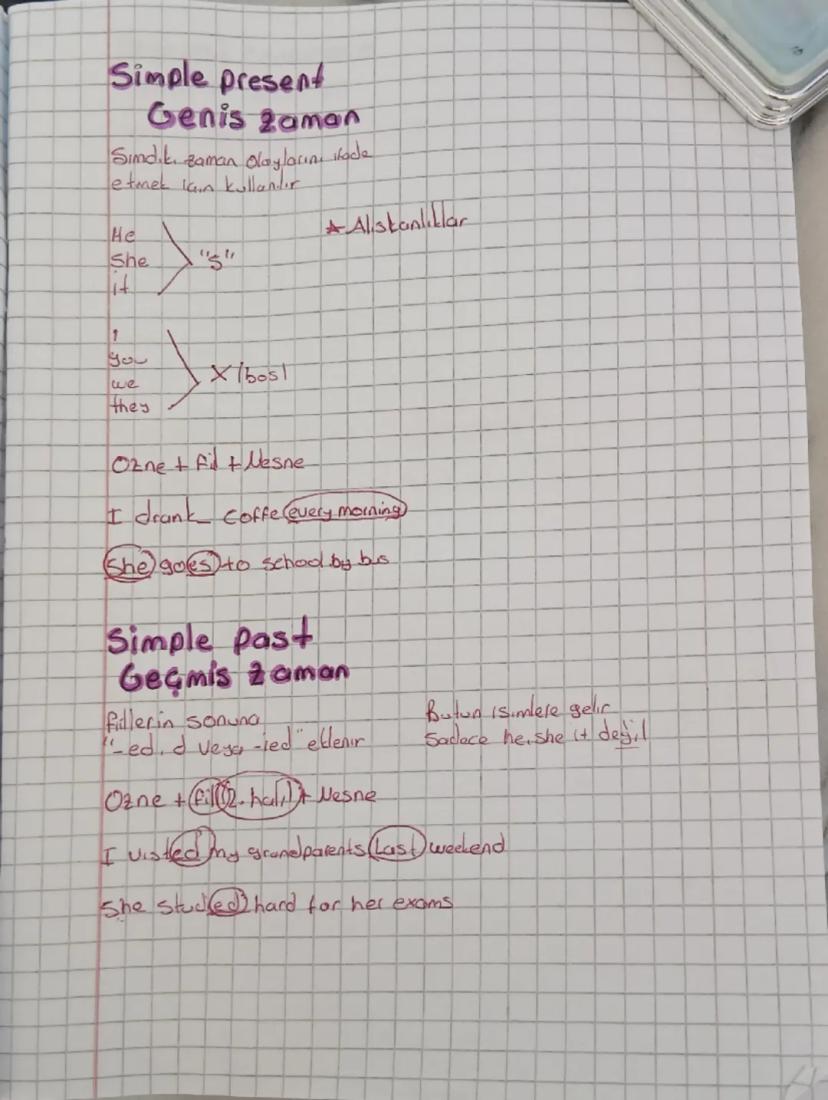 Simple present
Genis zaman
Simdik zaman olaylarını ifade
etmek için kullanılır
He
She
it
"S"
★ Alıskanlıklar
I
you
we
they
X /bos/
Ozne + fiil + Nesne
I drank coffe every morning
She goes to school by bus
Simple past
Geçmis zaman
fiillerin sonuna
"-ed, d veya -ied" eklenir
Butun isimlere gelir
Sadece he, she it değil
Ozne + fiil (2. hali) + Nesne
I visted my grandparents last weekend
She studed hard for her exams